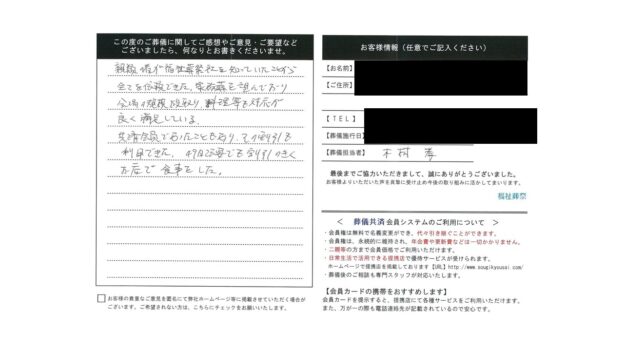 この度のご葬儀に関してご感想やご意見・ご要望など
ございましたら、何なりとお書きくださいませ。
親戚 が福祉葬祭社を知っていたことから
全てを依頼できた。家族葬を望んでおり
会場の規模、段取り、料理等も対応が
良く満足している。
共済会員であったこともあり、その割引も
利用できた。49日法要でも割引がきく
お店で食事をした。
お客様の貴重なご意見を匿名にて弊社ホームページ等に掲載させていただく場合が
ございます。ご希望されない方は、こちらにチェックをお願いいたします。
お客様情報（任意でご記入ください）
【お名前】
【ご住所】
【ＴＥＬ】
【葬儀施行日】
【葬儀担当者】 木村
最後までご協力いただきまして、誠にありがとうございました。
お客様よりいただいた声を真摯に受け止め今後の取り組みに活かしてまいります。
福祉葬祭
＜ 葬儀共済会員システムのご利用について ＞
・会員権は無料で名義変更ができ、代々引き継ぐことができます。
・会員権は、永続的に維持され、年会費や更新費などは一切かかりません。
・二親等の方まで会員価格でご利用いただけます。
・日常生活で活用できる提携店で優待サービスが受けられます。
ホームページで提携店を掲載しております【URL】http://www.sougikyousai.com/
・葬儀後のご相談も専門スタッフが対応いたします。
【会員カードの携帯をおすすめします】
会員カードを提示すると、提携店にて各種サービスをご利用いただけます。
また、万が一の際も電話連絡先が記載されているので安心です。